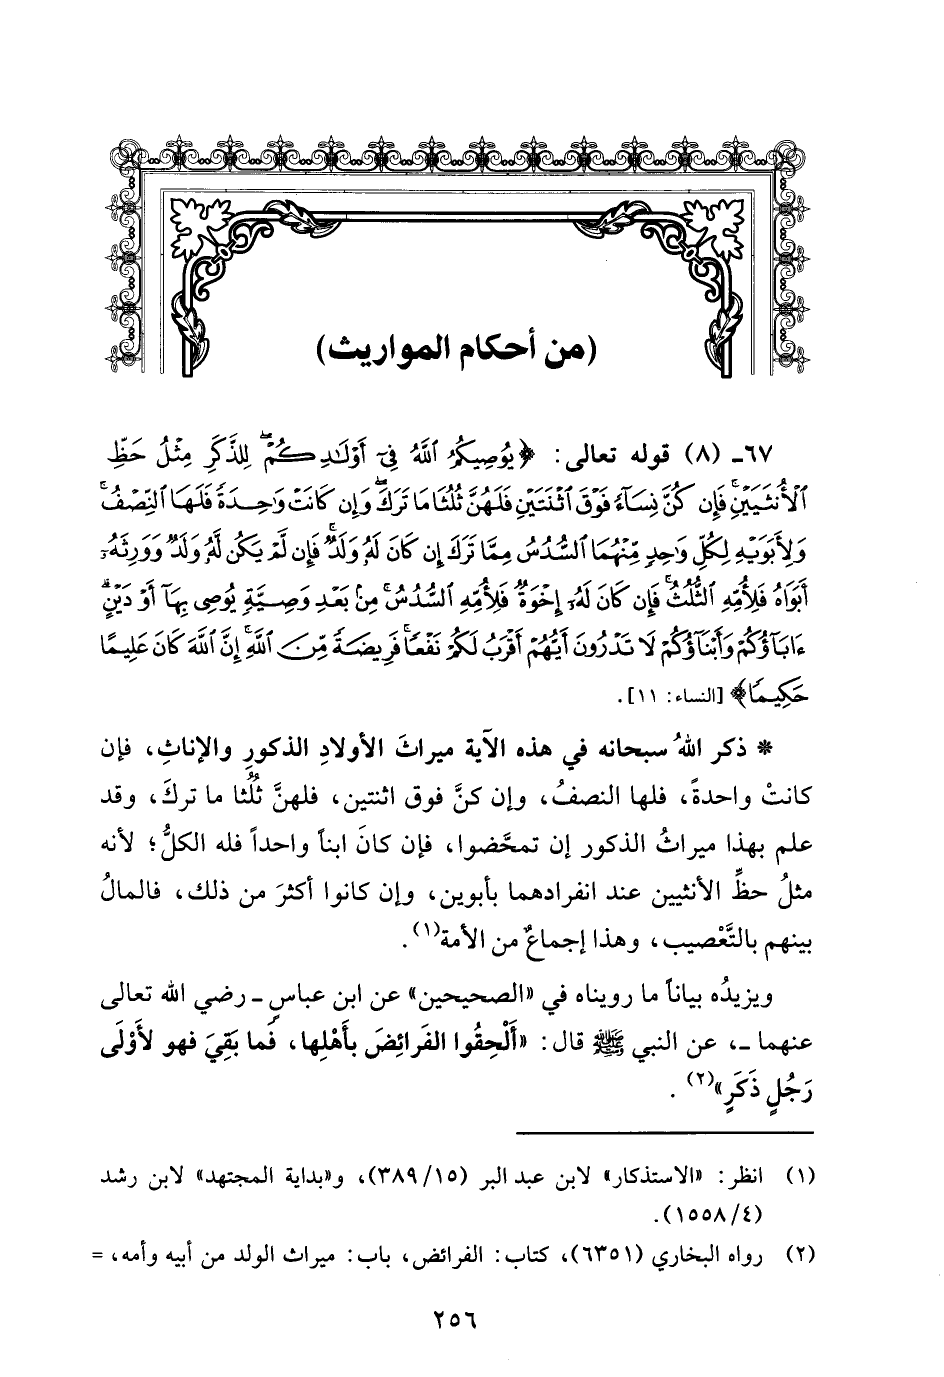 (من أحكام المواريث)
٦٧ـ (٨) قوله تعالى: ﴿يُوصِيكُمُ ٱللَّهُ فِىٓ أَوْلَٰدِكُمْ ۖ لِلذَّكَرِ مِثْلُ حَظِّ
ٱلْأُنثَيَيْنِ ۚ فَإِن كُنَّ نِسَآءً فَوْقَ ٱثْنَتَيْنِ فَلَهُنَّ ثُلُثَا مَا تَرَكَ ۖ وَإِن كَانَتْ وَٰحِدَةً فَلَهَا ٱلنِّصْفُ ۚ
وَلِأَبَوَيْهِ لِكُلِّ وَٰحِدٍ مِّنْهُمَا ٱلسُّدُسُ مِمَّا تَرَكَ إِن كَانَ لَهُۥ وَلَدٌ ۚ فَإِن لَّمْ يَكُن لَّهُۥ وَلَدٌ وَوَرِثَهُۥٓ
أَبَوَاهُ فَلِأُمِّهِ ٱلثُّلُثُ ۚ فَإِن كَانَ لَهُۥٓ إِخْوَةٌ فَلِأُمِّهِ ٱلسُّدُسُ ۚ مِنۢ بَعْدِ وَصِيَّةٍ يُوصِى بِهَآ أَوْ دَيْنٍ ۗ
ءَابَآؤُكُمْ وَأَبْنَآؤُكُمْ لَا تَدْرُونَ أَيُّهُمْ أَقْرَبُ لَكُمْ نَفْعًا ۚ فَرِيضَةً مِّنَ ٱللَّهِ ۗ إِنَّ ٱللَّهَ كَانَ عَلِيمًا
حَكِيمًا﴾ [النساء: ١١].
* ذكر اللهُ سبحانه في هذه الآية ميراثَ الأولادِ الذكورِ والإناثِ، فإن
كانتْ واحدةً، فلها النصفُ، وإن كنَّ فوق اثنتين، فلهنَّ ثُلُثا ما تركَ، وقد
علم بهذا ميراثُ الذكور إن تمحَّضوا، فإن كانَ ابناً واحداً فله الكلُّ؛ لأنه
مثلُ حظِّ الأنثيين عند انفرادهما بأبوين، وإن كانوا أكثرَ من ذلك، فالمالُ
بينهم بالتَّعْصيب، وهذا إجماعٌ من الأمة(١).
ويزيدُه بياناً ما رويناه في «الصحيحين» عن ابن عباسٍ ـ رضي الله تعالى
عنهما ـ، عن النبي ﷺ قال: «أَلْحِقُوا الفَرائِضَ بِأَهْلِها، فَما بَقِيَ فهو لأَوْلَى
رَجُلٍ ذَكَرٍ»(٢).
(١) انظر: «الاستذكار» لابن عبد البر (١٥/ ٣٨٩)، و«بداية المجتهد» لابن رشد
(٤/ ١٥٥٨).
(٢) رواه البخاري (٦٣٥١)، كتاب: الفرائض، باب: ميراث الولد من أبيه وأمه، =
٢٥٦